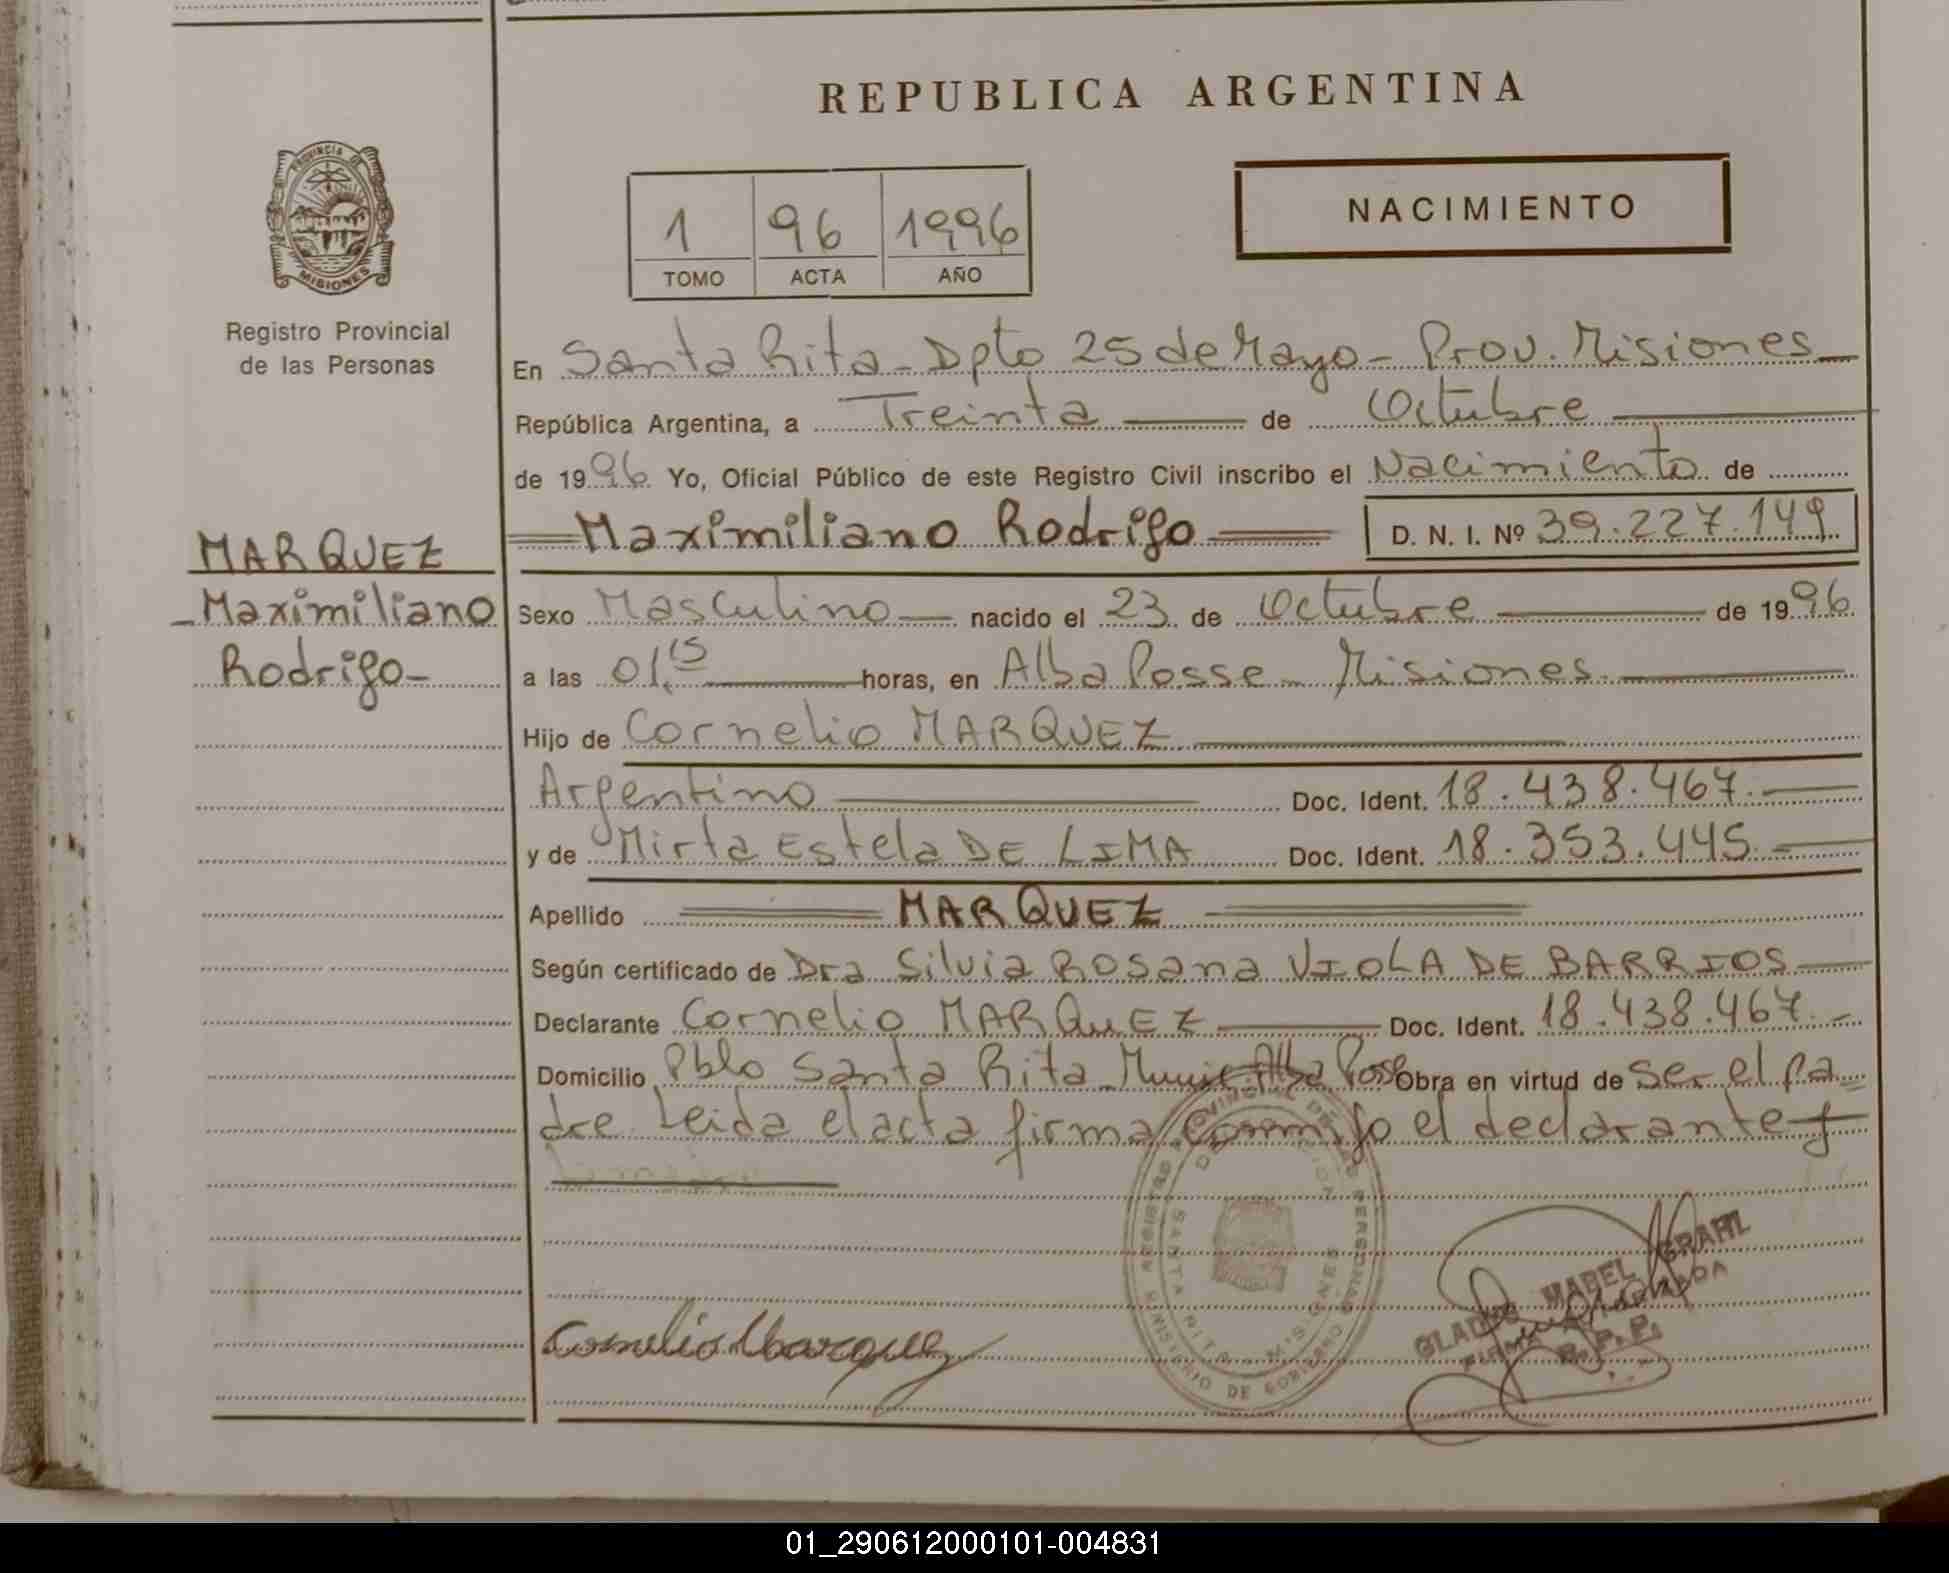 REPUBLICA ARGENTINA
PROVINCIA DE
MISIONES
Registro Provincial
de las Personas
1 96 1996
TOMO ACTA AÑO
NACIMIENTO
En Santa Rita - Dpto 25 de Mayo - Prov. Misiones
República Argentina, a Treinta de Octubre
de 1996 Yo, Oficial Público de este Registro Civil inscribo el Nacimiento de
Maximiliano Rodrigo D. N. I. Nº 39.227.149
MARQUEZ
Maximiliano
Rodrigo-
Sexo Masculino nacido el 23 de Octubre de 1996
a las 01,15 horas, en Alba Posse - Misiones
Hijo de Cornelio MARQUEZ
Argentino Doc. Ident. 18.438.467.
y de Mirta Estela DE LIMA Doc. Ident. 18.353.445
Apellido MARQUEZ
Según certificado de Dra Silvia Rosana VIOLA DE BARRIOS
Declarante Cornelio MARQUEZ Doc. Ident. 18.438.467.
Domicilio Pblo Santa Rita - Munic. Alba Posse Obra en virtud de ser el pa
dre Leida el acta firma conmigo el declarante
SANTA RITA - MISIONES
MINISTERIO DE GOBIERNO
Cornelio Marquez
GLADYS MABEL GRAHL
FIRMA AUTORIZADA
R. P. P.
01_290612000101-004831